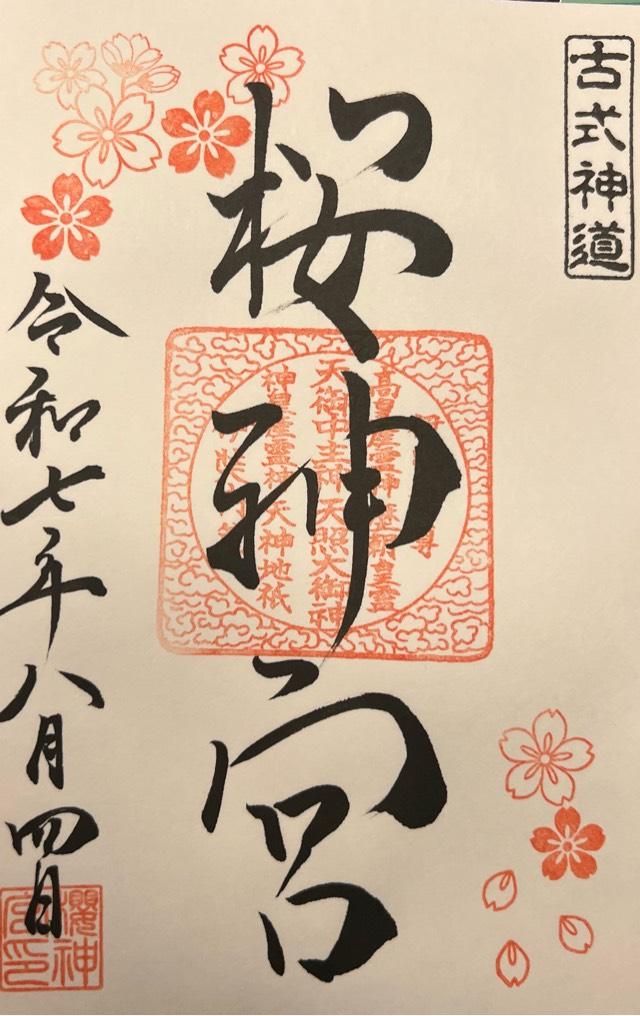 古式神道
桜神宮
高皇産霊神歴朝皇霊
天御中主神天照大御神
神皇産霊神天神地祇
令和七年八月四日
櫻神
宮印